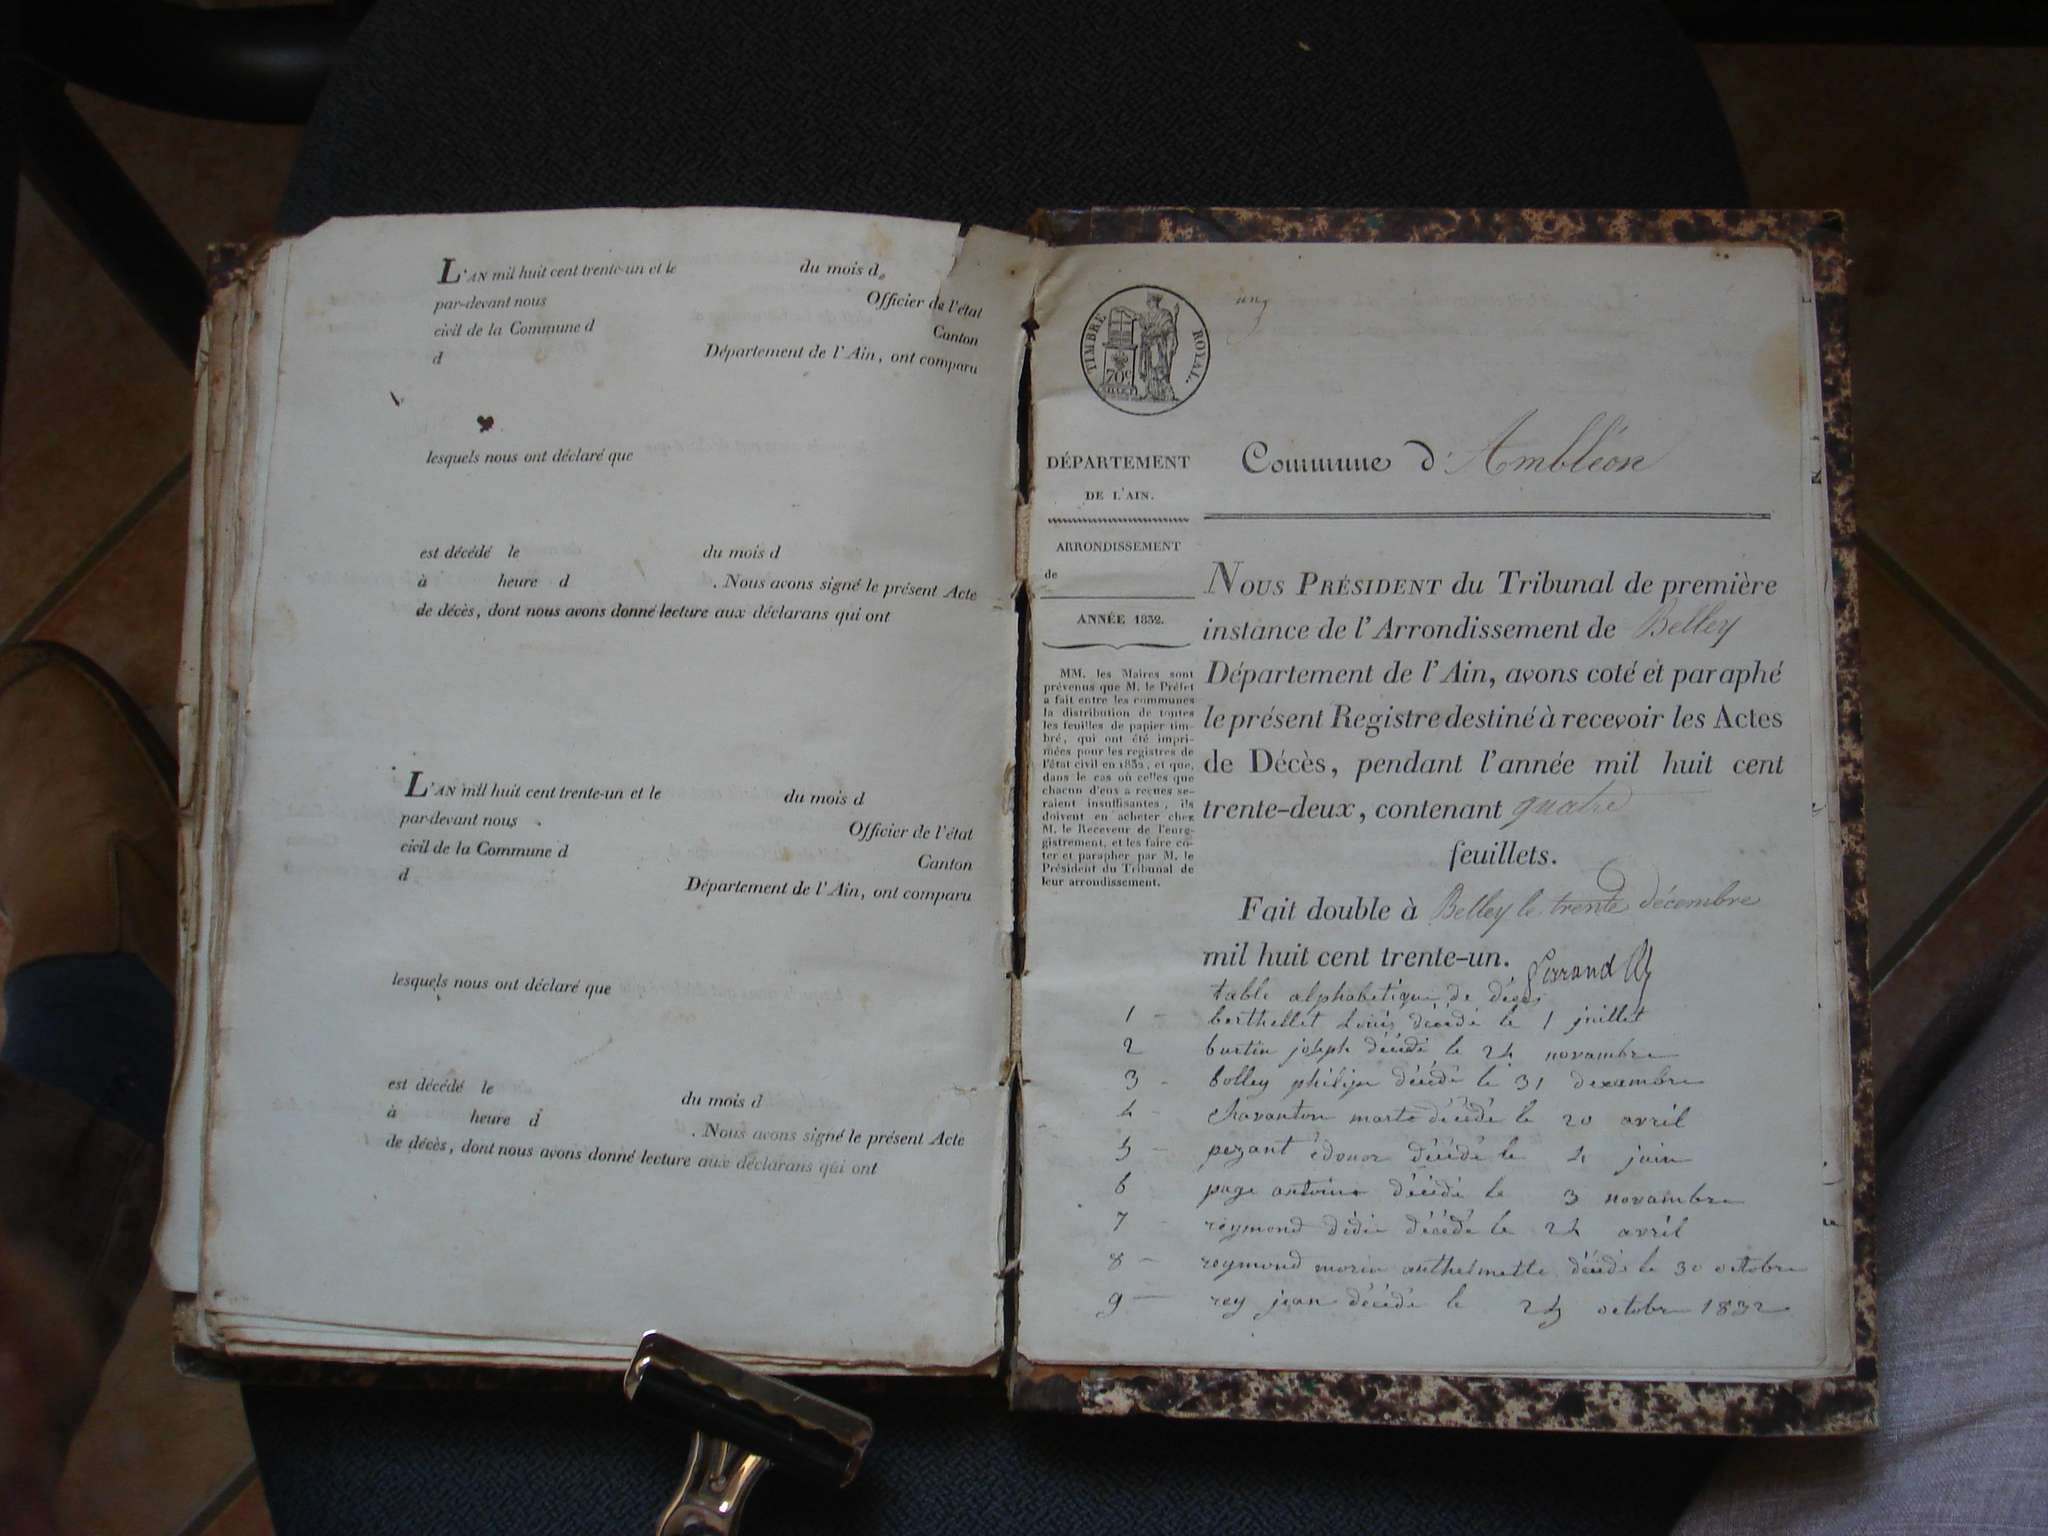 L'AN mil huit cent trente-un et le du mois d
par-devant nous Officier de l'état
civil de la Commune d Canton
d Département de l'Ain, ont comparu
lesquels nous ont déclaré que
est décédé le du mois d
à heure d . Nous avons signé le présent Acte
de décès, dont nous avons donné lecture aux déclarans qui ont
L'AN mil huit cent trente-un et le du mois d
par-devant nous Officier de l'état
civil de la Commune d Canton
d Département de l'Ain, ont comparu
lesquels nous ont déclaré que
est décédé le du mois d
à heure d . Nous avons signé le présent Acte
de décès, dont nous avons donné lecture aux déclarans qui ont
TIMBRE ROYAL.
70c
DÉPARTEMENT
DE L'AIN.
ARRONDISSEMENT
de
ANNÉE 1832.
MM. les Maires sont
prévenus que M. le Préfet
a fait entre les communes
la distribution de toutes
les feuilles de papier tim-
bré, qui ont été impri-
mées pour les registres de
l'état civil en 1832, et que,
dans le cas où celles que
chacun d'eux a reçues se-
raient insuffisantes, ils
doivent en acheter chez
M. le Receveur de l'enre-
gistrement, et les faire co-
ter et parapher par M. le
Président du Tribunal de
leur arrondissement.
Commune d'Ambléon
NOUS PRÉSIDENT du Tribunal de première
instance de l'Arrondissement de Belley
Département de l'Ain, avons coté et paraphé
le présent Registre destiné à recevoir les Actes
de Décès, pendant l'année mil huit cent
trente-deux, contenant quatre
feuillets.
Fait double à Belley le trente décembre
mil huit cent trente-un.
table alphabetique de décès
1 - berthellet Louis décédé le 1 juillet
2 burtin joseph décédé le 24 novambre
3 - bolley philipe décédé le 31 dexambre
4 - chavanton marte décédé le 20 avril
5 - pezant édouor décédé le 4 juin
6 page antoine décédé le 3 novambre
7 - reymond didie décédé le 24 avril
8 - reymond morie anthelmette décédé le 30 octobre
9 - rey jean décédé le 25 octobre 1832